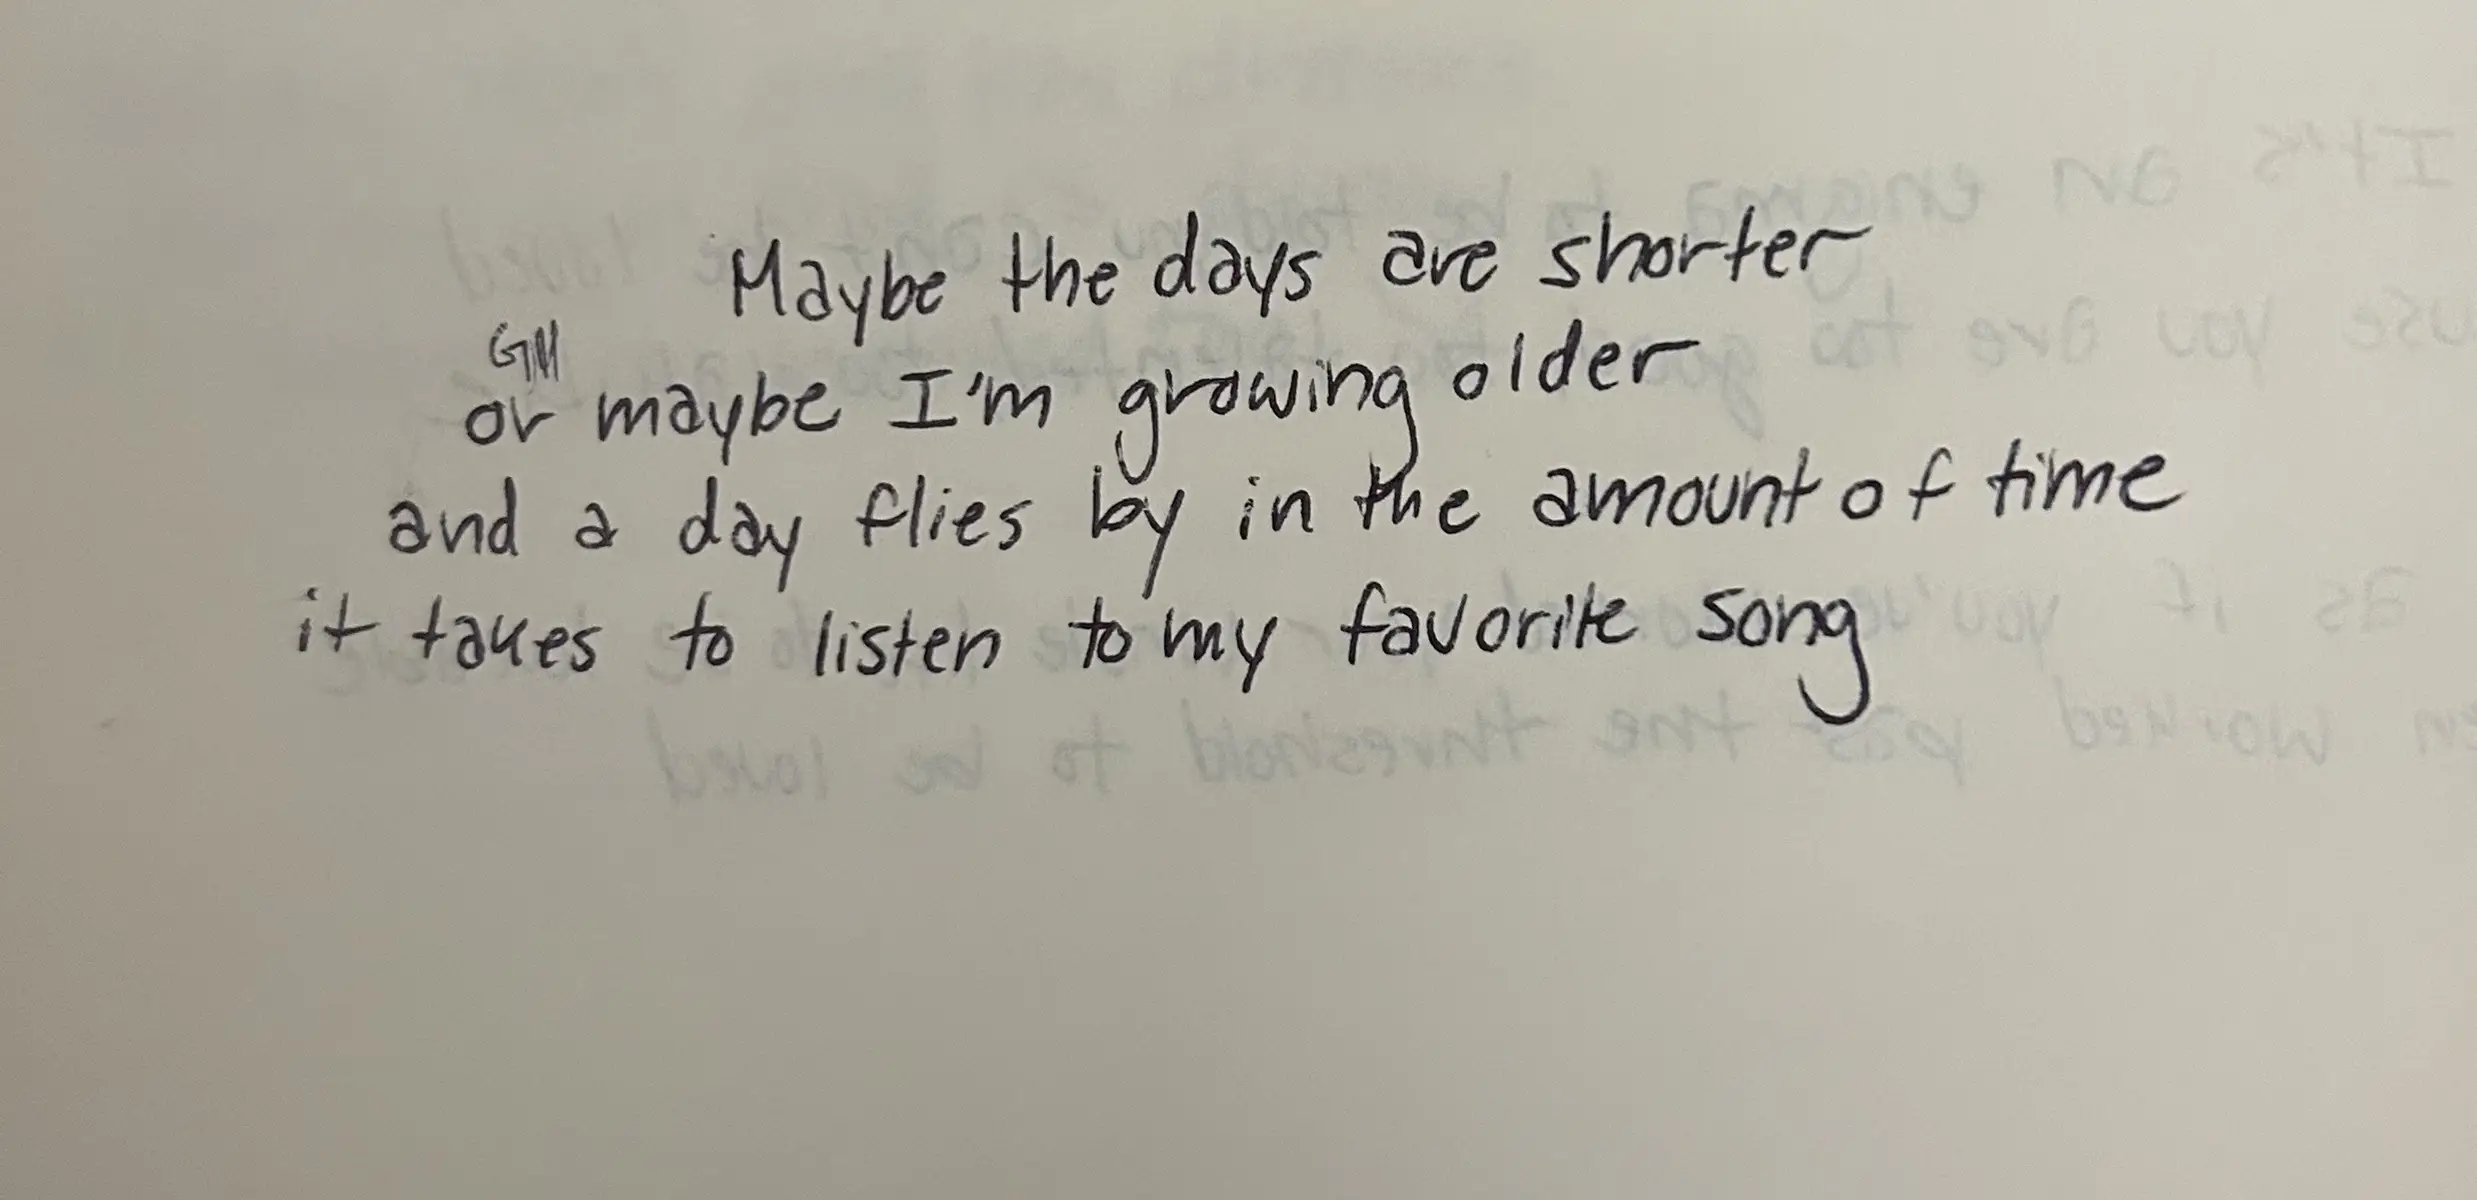 Maybe the days are shorter
or maybe I'm growing older
and a day flies by in the amount of time
it takes to listen to my favorite song